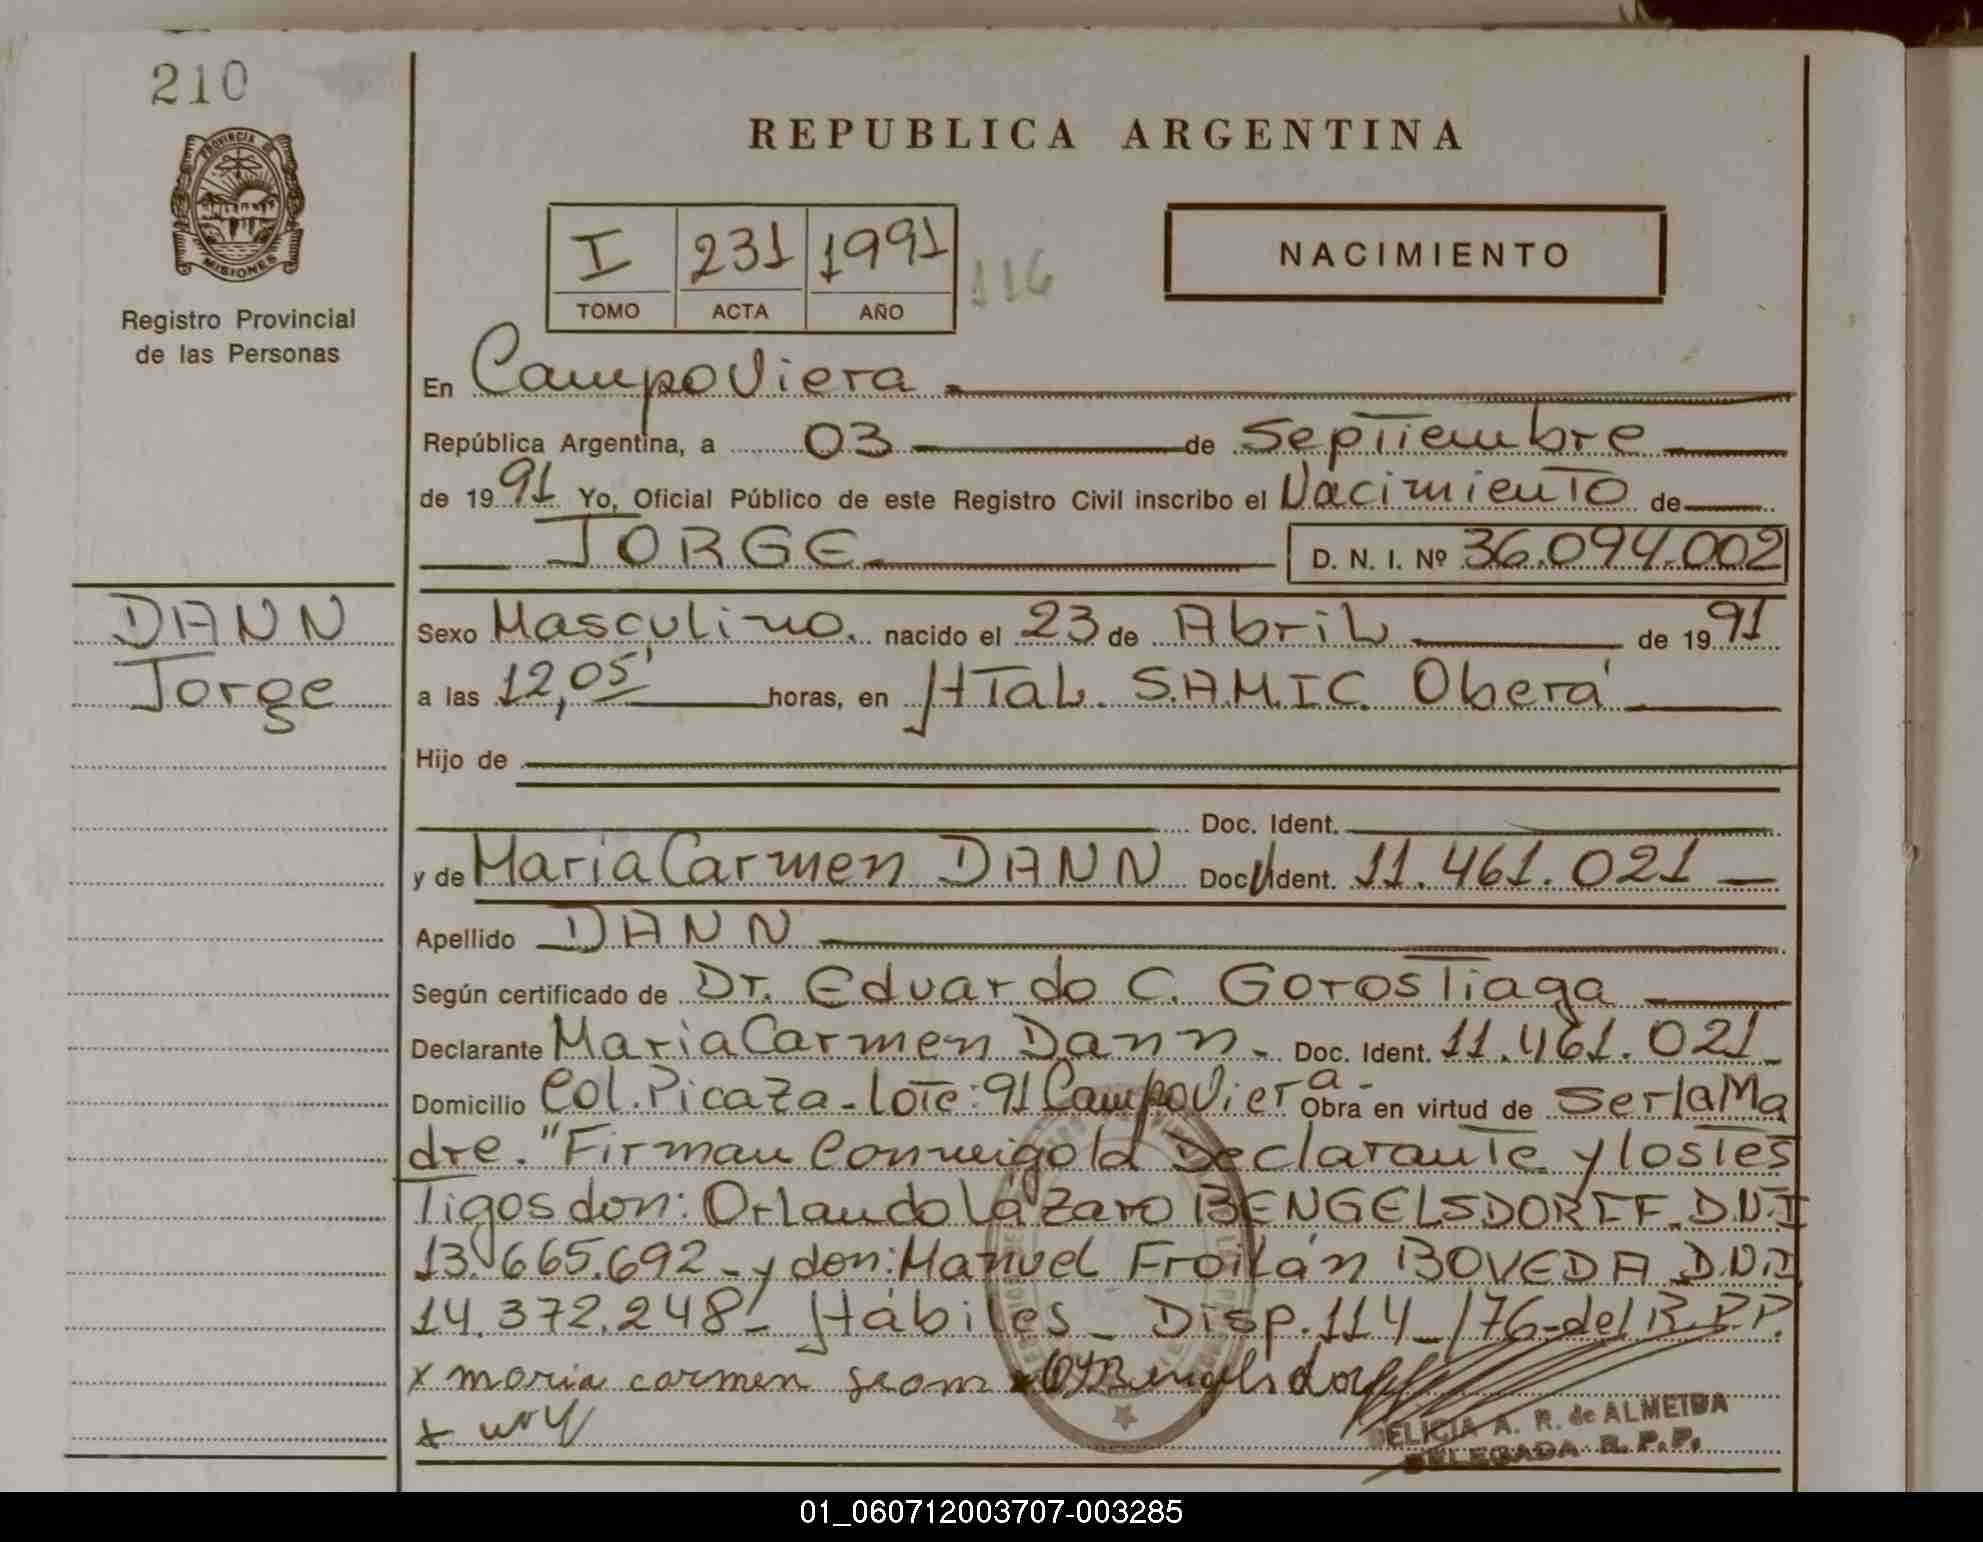 210
PROVINCIA DE
MISIONES
Registro Provincial
de las Personas
DANN
Jorge
REPUBLICA ARGENTINA
I 231 1991 116
TOMO ACTA AÑO
NACIMIENTO
En CampoViera
República Argentina, a 03 de Septiembre
de 1991 Yo, Oficial Público de este Registro Civil inscribo el Nacimiento de
JORGE D. N. I. Nº 36.094.002
Sexo Masculino. nacido el 23 de Abril de 1991
a las 12,05' horas, en Htal. S.A.M.I.C. Oberá
Hijo de
Doc. Ident.
y de Maria Carmen DANN Doc. Ident. 11.461.021
Apellido DANN
Según certificado de Dr. Eduardo C. Gorostiaga
Declarante Maria Carmen Dann. Doc. Ident. 11.461.021
Domicilio Col. Picaza - lote: 91 CampoViera - Obra en virtud de ser la Ma
dre. "Firman conmigo la Declarante y los tes
tigos don: Orlando Lázaro BENGELSDORFF D.N.I
13.665.692 - y don: Manuel Froilán BOVEDA D.N.I
14.372.248 - Hábiles - Disp. 114 - /76 - del R.P.P.
x maria carmen
x
DELICIA A. R. de ALMEIDA
DELEGADA R. P. P.
01_060712003707-003285